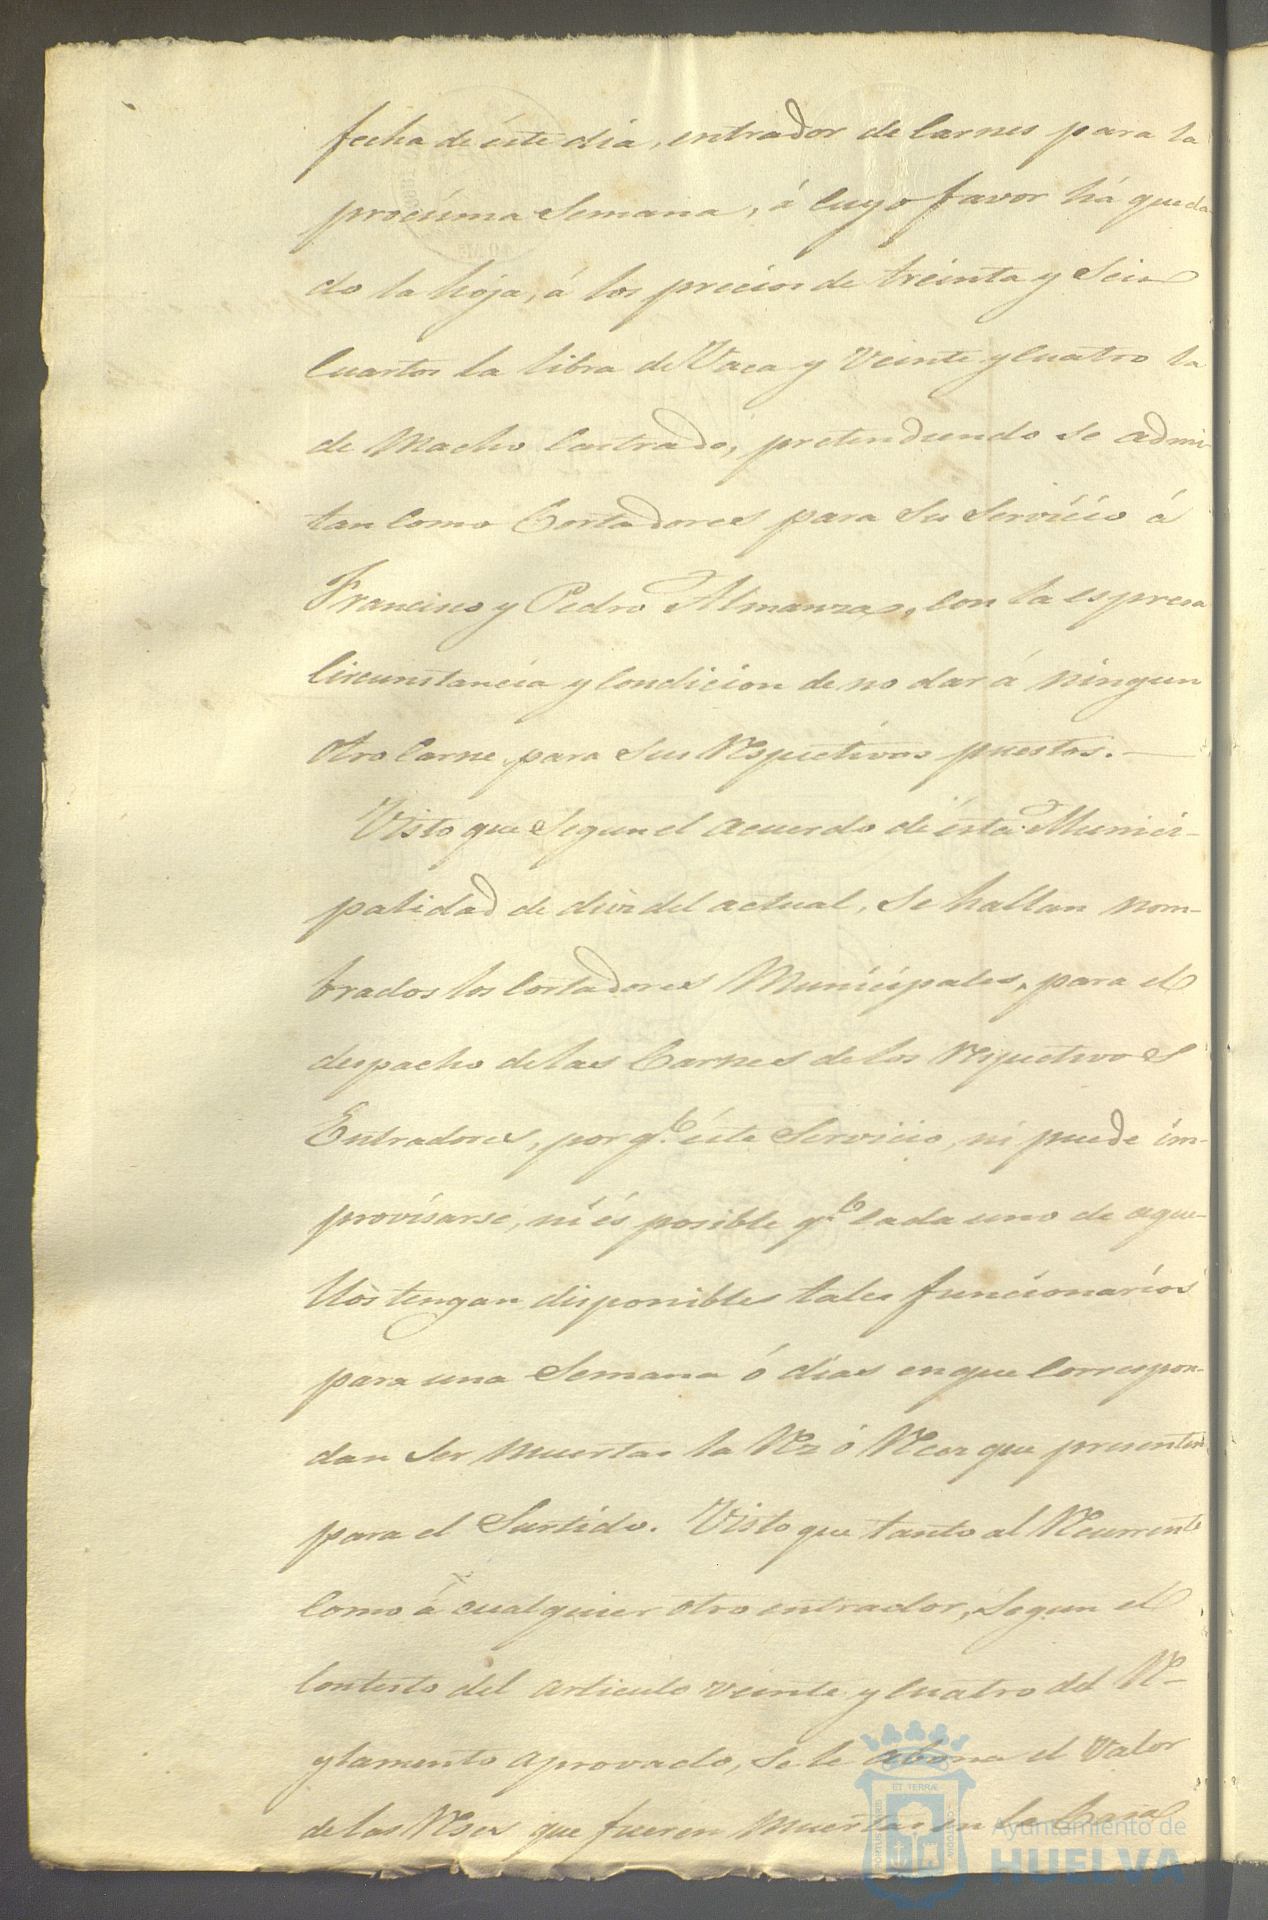 fecha de éste dia, entrador de Carnes para la
procsima Semana, á cuyo favor há queda
do la hoja, á los precios de treinta y Seis
Cuartos la libra de Vaca y Veinte y Cuatro la
de Macho Castrado, pretendiendo se admi-
tan Como Cortadores para Su Servicio á
Francisco y Pedro Almanzas, Con la espresa
Circunstancia y Condicion de no dar á ningun
otro Carne para Sus Respectivos puestos.
Visto que Segun el acuerdo de ésta Munici-
palidad de diez del actual, Se hallan nom-
brados los Cortadores Municipales, para el
despacho de las Carnes de los Respectivos
Entradores, por q.e éste Servicio, ni puede im-
provisarse, ni és posible q.e Cada uno de aque-
llos tengan disponibles tales funcionarios
para una Semana ó dias en que Correspon-
dan Ser muertas la Rez ó Reces que presenten
para el Surtido. Visto que tanto al Recurrente
Como á cualquier otro entrador, Segun el
Contesto del articulo veinte y Cuatro del Re-
glamento aprovado, Se le abona el Valor
de las Reses que fueren muertas en la Casa
ET TERRÆ
Ayuntamiento de
HUELVA